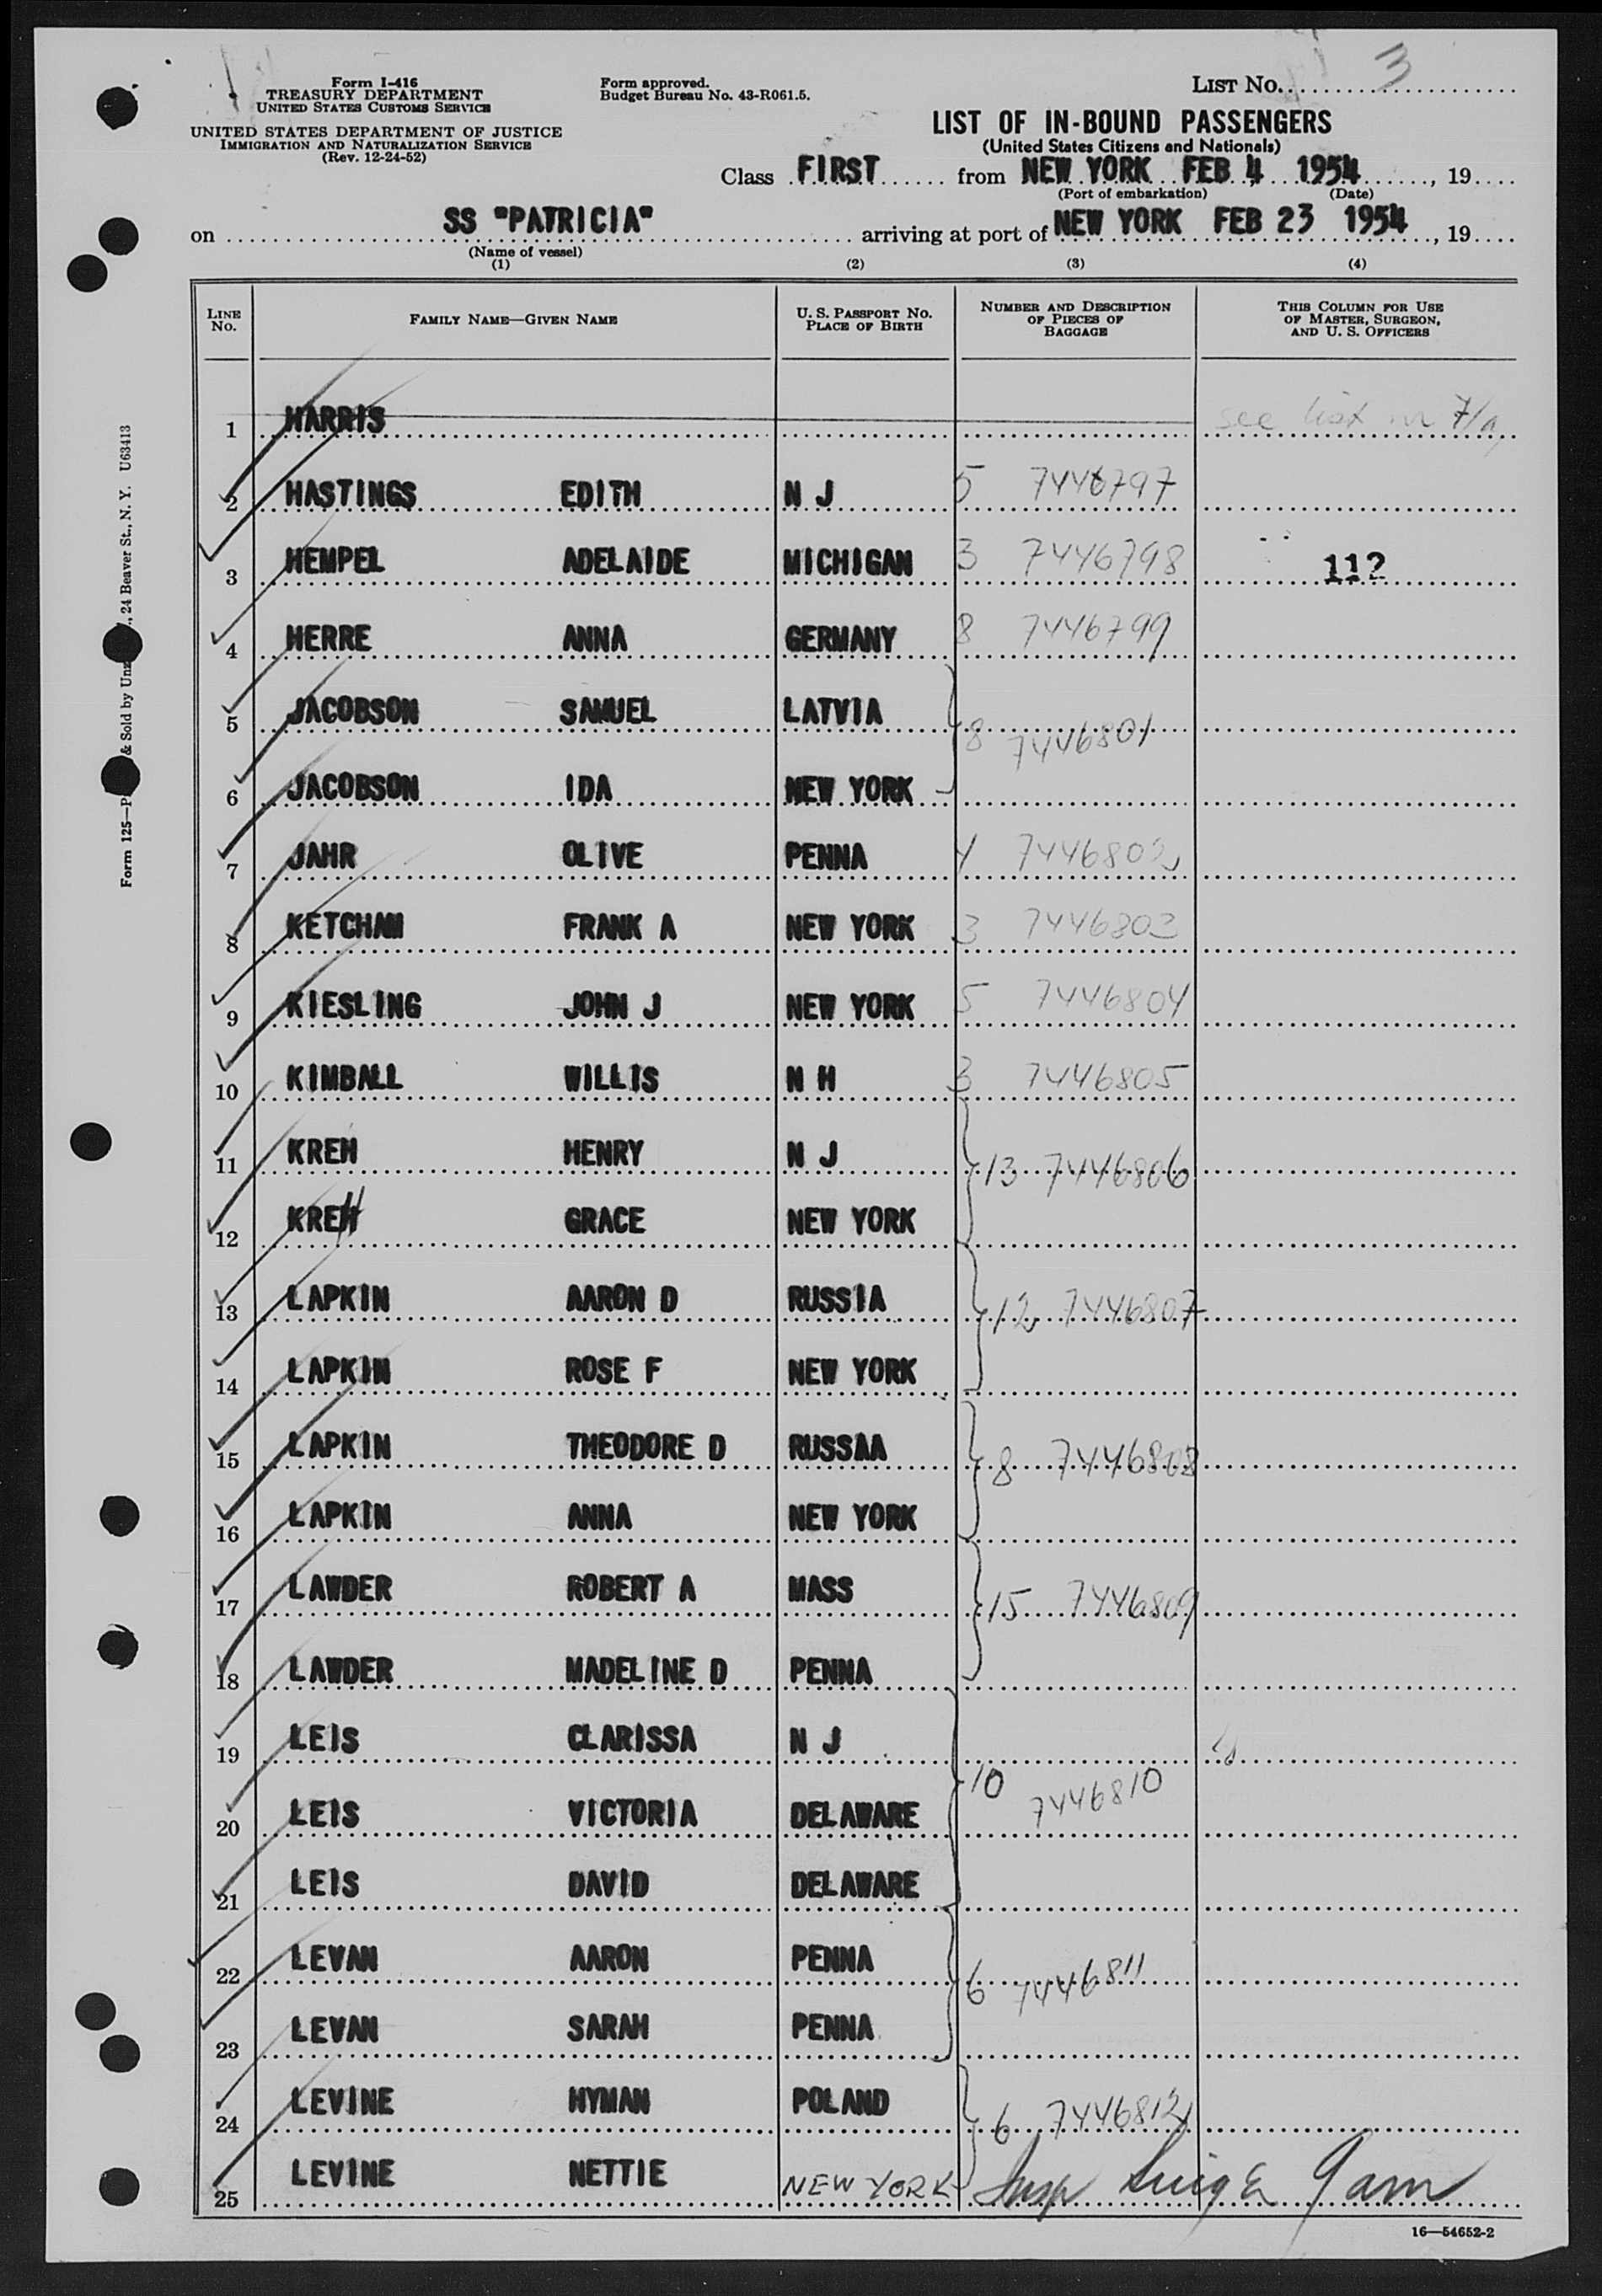 Form I-416
TREASURY DEPARTMENT
UNITED STATES CUSTOMS SERVICE
UNITED STATES DEPARTMENT OF JUSTICE
IMMIGRATION AND NATURALIZATION SERVICE
(Rev. 12-24-52)
Form approved.
Budget Bureau No. 43-R061.5.
LIST NO. 3
LIST OF IN-BOUND PASSENGERS
(United States Citizens and Nationals)
Class FIRST from NEW YORK FEB 4 1954, 19
(Port of embarkation) (Date)
on SS "PATRICIA" arriving at port of NEW YORK FEB 23 1954, 19
(Name of vessel)
(1) (2) (3) (4)
LINE NO. FAMILY NAME—GIVEN NAME U. S. PASSPORT NO. PLACE OF BIRTH NUMBER AND DESCRIPTION OF PIECES OF BAGGAGE THIS COLUMN FOR USE OF MASTER, SURGEON, AND U. S. OFFICERS
1 HARRIS see list
2 HASTINGS EDITH N J 5 7446797
3 HEMPEL ADELAIDE MICHIGAN 3 7446798 112
4 HERRE ANNA GERMANY 8 7446799
5 JACOBSON SAMUEL LATVIA 8 7446801
6 JACOBSON IDA NEW YORK
7 JAHR OLIVE PENNA 4 7446802
8 KETCHAM FRANK A NEW YORK 3 7446803
9 KIESLING JOHN J NEW YORK 5 7446804
10 KIMBALL WILLIS N H 3 7446805
11 KREH HENRY N J 13 7446806
12 KREH GRACE NEW YORK
13 LAPKIN AARON D RUSSIA 12 7446807
14 LAPKIN ROSE F NEW YORK
15 LAPKIN THEODORE D RUSSAA 8 7446808
16 LAPKIN ANNA NEW YORK
17 LAWDER ROBERT A MASS 15 7446809
18 LAWDER MADELINE D PENNA
19 LEIS CLARISSA N J
20 LEIS VICTORIA DELAWARE 10 7446810
21 LEIS DAVID DELAWARE
22 LEVAN AARON PENNA 6 7446811
23 LEVAN SARAH PENNA
24 LEVINE HYMAN POLAND 6 7446812
25 LEVINE NETTIE NEW YORK
16—54652-2
Form 125—P & Sold by Unz , 24 Beaver St., N. Y. U63413